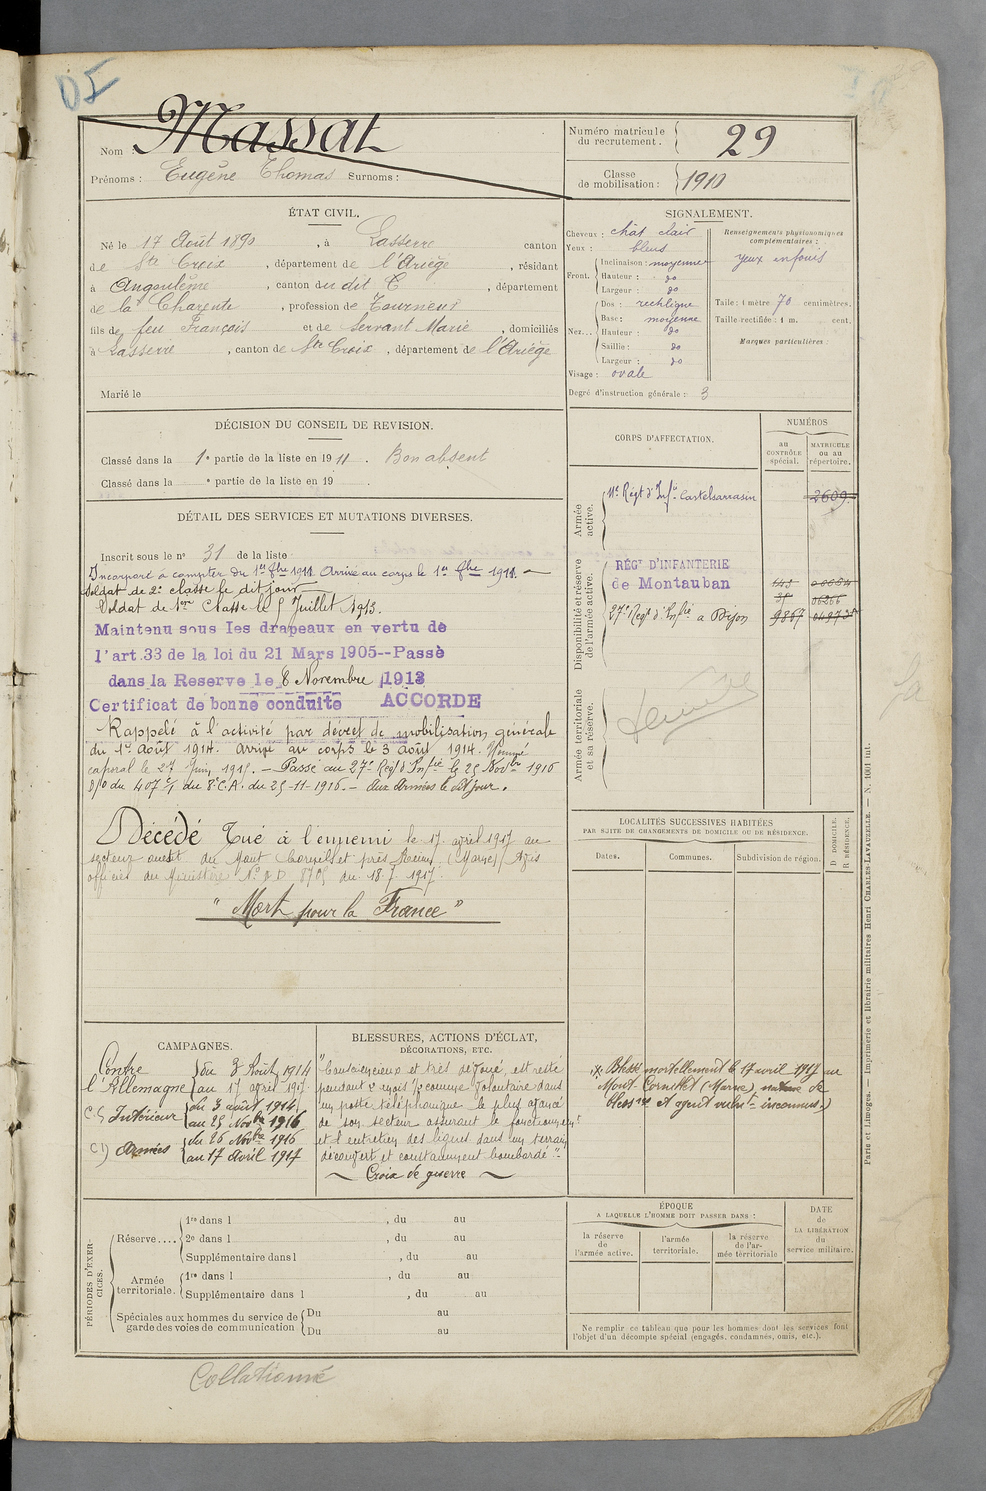 Massat
Nom :
Prénoms : Eugène Thomas Surnoms :
Numéro matricule
du recrutement.
29
Classe
de mobilisation :
1910
ÉTAT CIVIL.
Né le 17 Août 1890, à Lasserre canton
de Ste Croix, département de l'Ariège, résidant
à Angoulême, canton du dit C, département
de la Charente, profession de Tourneur
fils de feu François et de Servant Marie, domiciliés
à Lasserre, canton de Ste Croix, département de l'Ariège
Marié le
SIGNALEMENT.
Cheveux : chât clair
Yeux : bleus
Front. Inclinaison : moyenne
Hauteur : do
Largeur : do
Nez... Dos : rectiligne
Base : moyenne
Hauteur : do
Saillie : do
Largeur : do
Visage : ovale
Degré d'instruction générale : 3
Renseignements physionomiques
complémentaires :
yeux enfouis
Taille : 1 mètre 70 centimètres.
Taille rectifiée : 1 m. cent.
Marques particulières :
DÉCISION DU CONSEIL DE REVISION.
Classé dans la 1e partie de la liste en 1911. Bon absent
Classé dans la e partie de la liste en 19 .
DÉTAIL DES SERVICES ET MUTATIONS DIVERSES.
Inscrit sous le no 31 de la liste
Incorporé à compter du 1er 8bre 1911. Arrivé au corps le 1er 8bre 1911.
Soldat de 2e classe le dit jour
Soldat de 1ère Classe le 5 Juillet 1913.
Maintenu sous les drapeaux en vertu de
l'art.33 de la loi du 21 Mars 1905--Passé
dans la Reserve le 8 Novembre 1913
Certificat de bonne conduite ACCORDE
Rappelé à l'activité par décret de mobilisation générale
du 1er Août 1914. Arrivé au corps le 3 août 1914. Nommé
caporal le 27 Juin 1915. — Passé au 27e Régt d'Infie le 25 Novbre 1916
du 8e C.A. du 25-11-1916. — Aux Armées le dit jour.
Décédé Tué à l'ennemi le 17 avril 1917 au
secteur ouest du Mont Cornillet près Reims (Marne) Avis
officiel du Ministère No 8705 du 18-7-1917.
"Mort pour la France"
CORPS D'AFFECTATION.
NUMÉROS
au
CONTRÔLE
spécial.
MATRICULE
ou au
répertoire.
Armée
active.
11e Régt d'Infie Castelsarrasin 2609
Disponibilité et réserve
de l'armée active.
RÉGt D'INFANTERIE
de Montauban
27e Régt d'Infie à Dijon 9867
Armée territoriale
et sa réserve.
LOCALITÉS SUCCESSIVES HABITÉES
PAR SUITE DE CHANGEMENTS DE DOMICILE OU DE RÉSIDENCE.
Dates.
Communes.
Subdivision de région.
D DOMICILE.
R RÉSIDENCE.
Blessé mortellement le 17 avril 1917 au
Mont-Cornillet (Marne) nature de
blessre et agent vulnt inconnus.)
CAMPAGNES.
Contre
l'Allemagne
du 3 Août 1914
au 17 avril 1917
C.S Intérieur
du 3 août 1914
au 25 Novbre 1916
C.D Armées
du 26 Novbre 1916
au 17 Avril 1917
BLESSURES, ACTIONS D'ÉCLAT,
DÉCORATIONS, ETC.
"Consciencieux et très dévoué, est resté
pendant mois comme volontaire dans
un poste téléphonique le plus avancé
de son secteur assurant le fonctionnemt
et l'entretien des lignes dans un terrain
découvert et constamment bombardé"-
Croix de guerre
PÉRIODES D'EXERCICES.
Réserve.... 1re dans l , du au
2e dans l , du au
Supplémentaire dans l , du au
Armée
territoriale.
1re dans l , du au
Supplémentaire dans l , du au
Spéciales aux hommes du service de
garde des voies de communication
Du au
Du au
ÉPOQUE
A LAQUELLE L'HOMME DOIT PASSER DANS :
la réserve
de
l'armée active.
l'armée
territoriale.
la réserve
de l'ar-
mée territoriale
DATE
de
LA LIBÉRATION
du
service militaire.
Ne remplir ce tableau que pour les hommes dont les services font
l'objet d'un décompte spécial (engagés, condamnés, omis, etc.).
Paris et Limoges. — Imprimerie et librairie militaires Henri CHARLES-LAVAUZELLE. — N. 1001 int.
Collationné